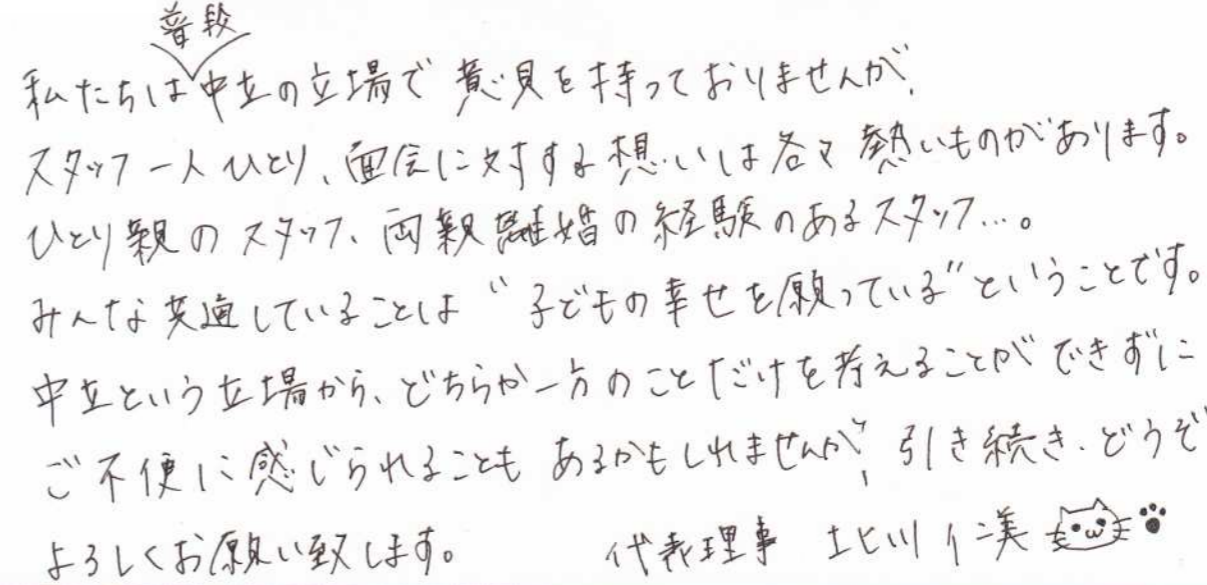 普段
私たちは中立の立場で意見を持っておりませんが、
スタッフ一人ひとり、面会に対する想いは各々熱いものがあります。
ひとり親のスタッフ、両親離婚の経験のあるスタッフ…。
みんな共通していることは“子どもの幸せを願っている”ということです。
中立という立場から、どちらか一方のことだけを考えることができずに
ご不便に感じられることもあるかもしれませんが、引き続き、どうぞ
よろしくお願い致します。 代表理事 北川 仁美